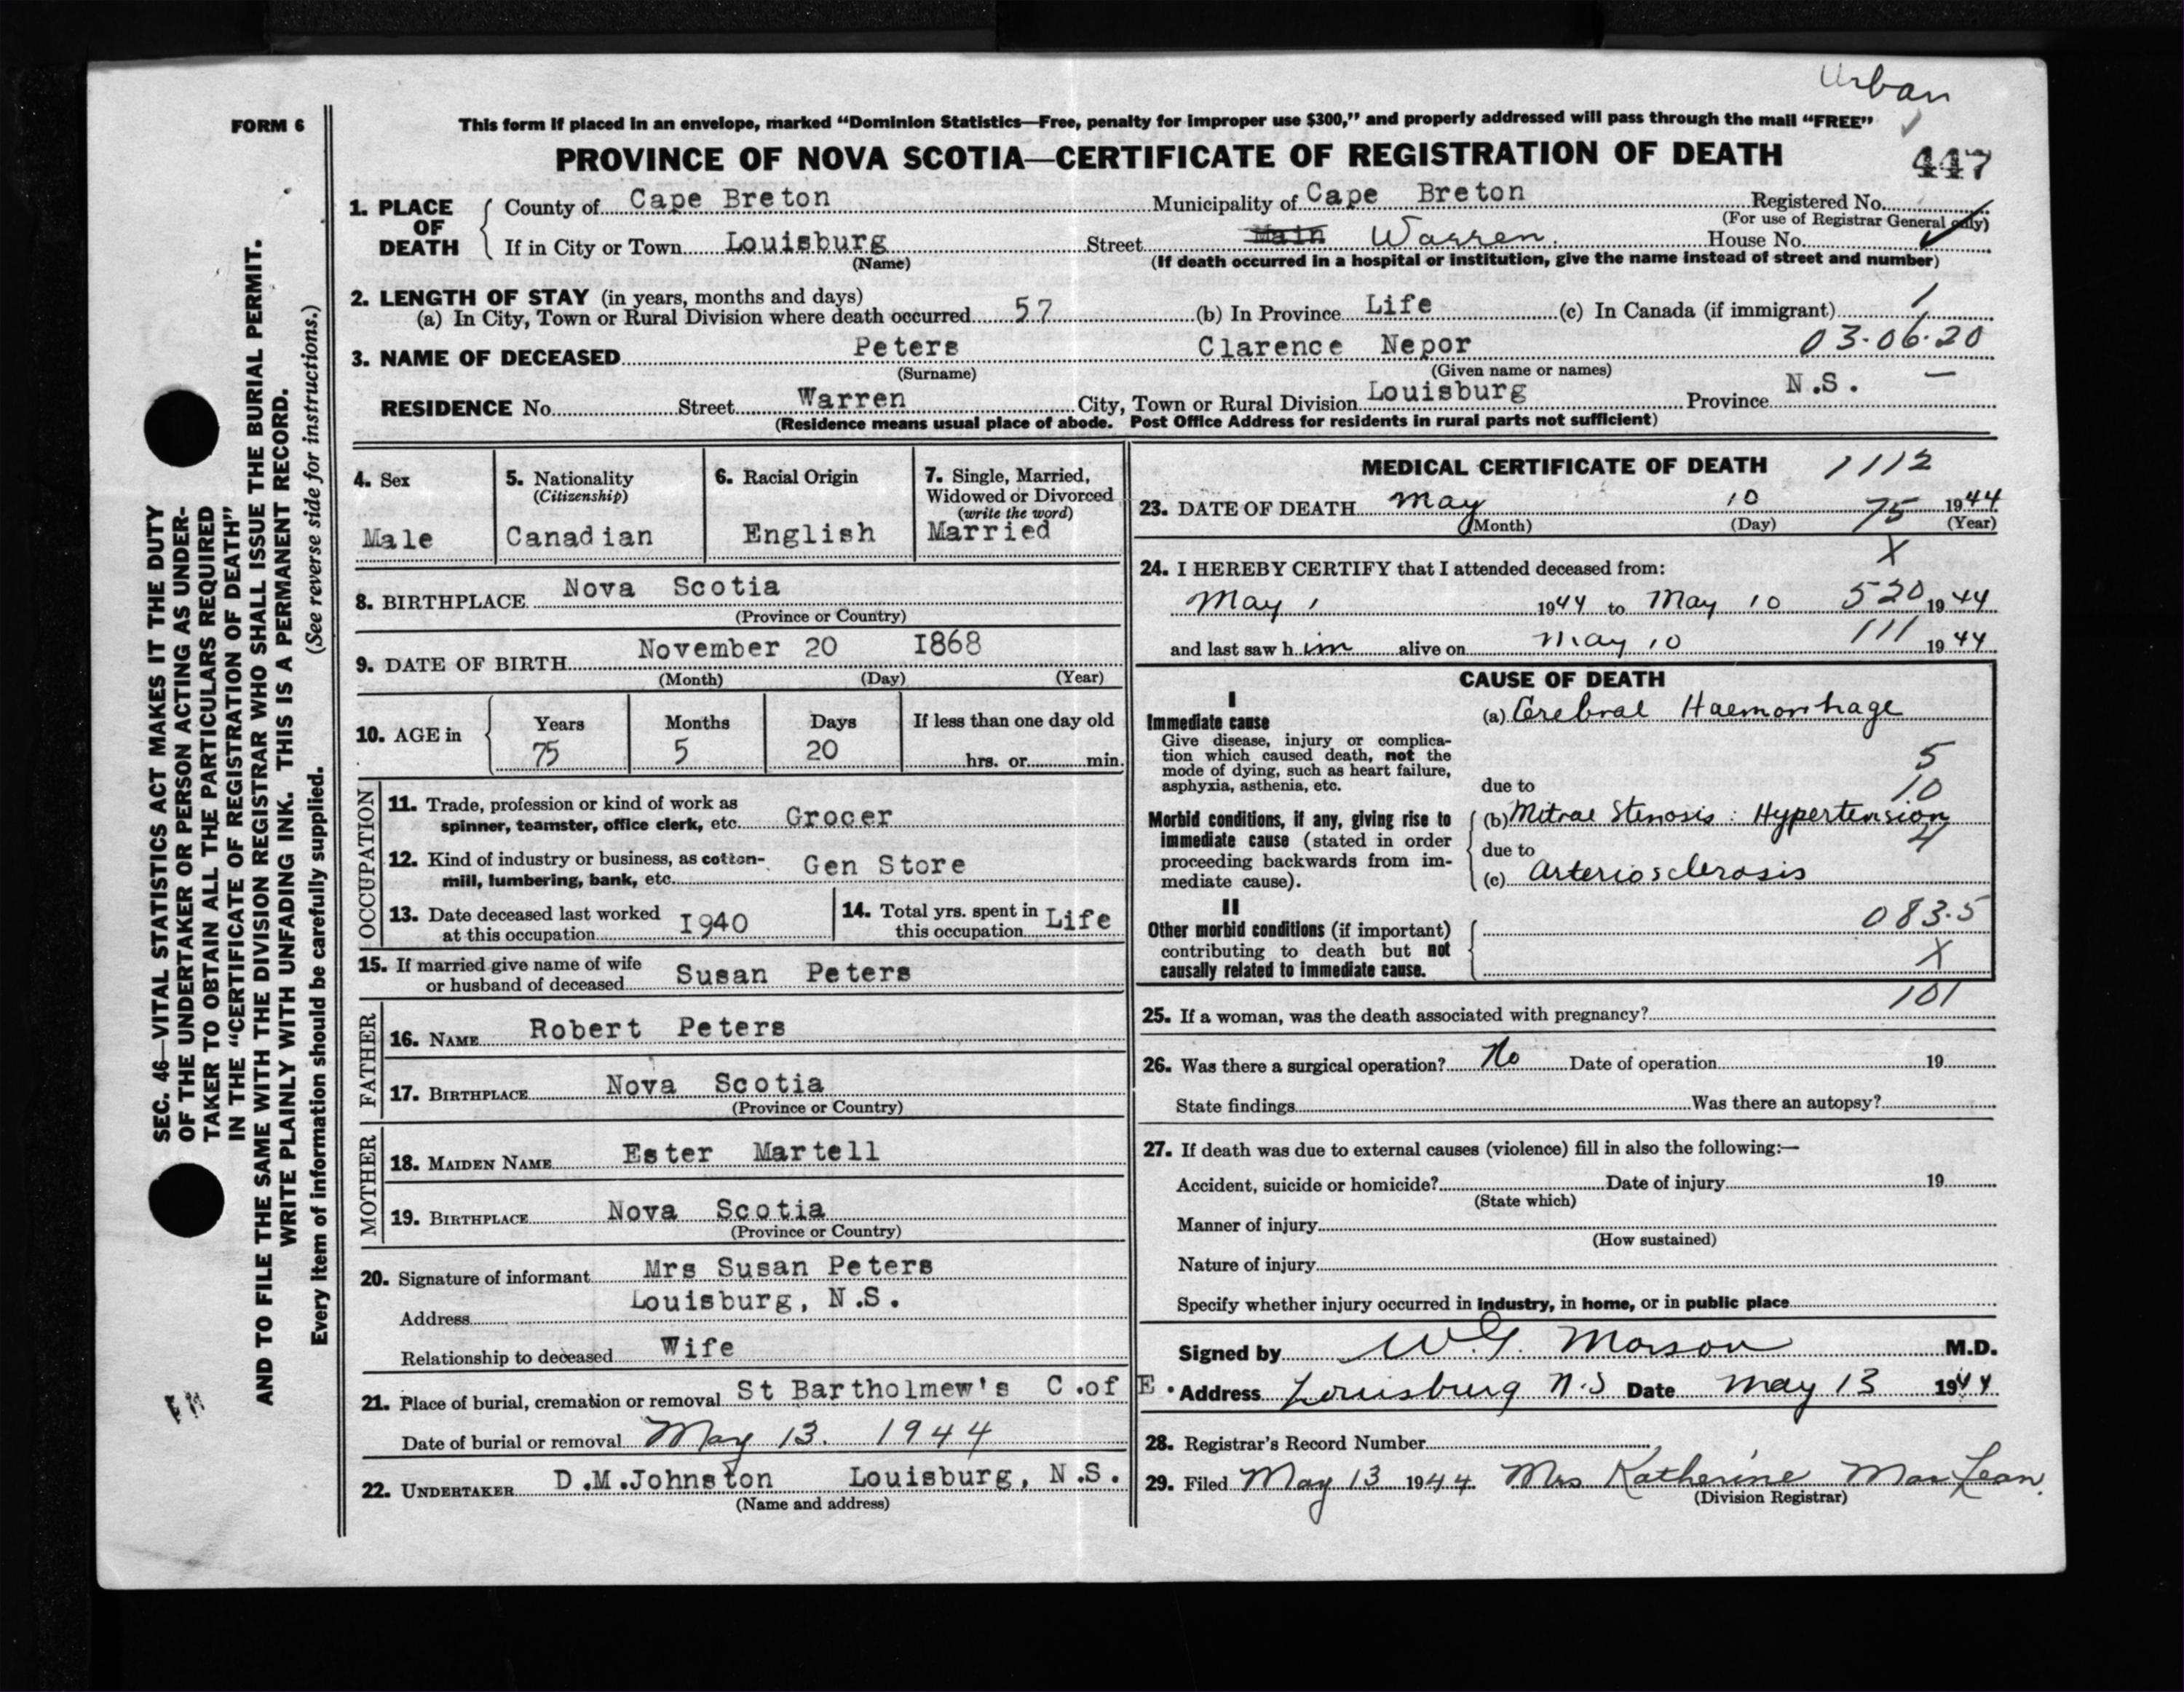 Urban
FORM 6
This form if placed in an envelope, marked “Dominion Statistics—Free, penalty for improper use $300,” and properly addressed will pass through the mail “FREE”
PROVINCE OF NOVA SCOTIA—CERTIFICATE OF REGISTRATION OF DEATH
447
1. PLACE OF DEATH
County of Cape Breton Municipality of Cape Breton Registered No.
(For use of Registrar General only)
If in City or Town Louisburg Street Main Warren. House No.
(Name) (If death occurred in a hospital or institution, give the name instead of street and number)
2. LENGTH OF STAY (in years, months and days)
(a) In City, Town or Rural Division where death occurred 57 (b) In Province Life (c) In Canada (if immigrant) 1
3. NAME OF DECEASED Peters Clarence Nepor 03-06-20
(Surname) (Given name or names)
RESIDENCE No. Street Warren City, Town or Rural Division Louisburg Province N.S. —
(Residence means usual place of abode. Post Office Address for residents in rural parts not sufficient)
4. Sex
Male
5. Nationality
(Citizenship)
Canadian
6. Racial Origin
English
7. Single, Married,
Widowed or Divorced
(write the word)
Married
8. BIRTHPLACE Nova Scotia
(Province or Country)
9. DATE OF BIRTH November 20 I868
(Month) (Day) (Year)
10. AGE in Years Months Days If less than one day old
75 5 20 hrs. or min.
OCCUPATION
11. Trade, profession or kind of work as
spinner, teamster, office clerk, etc. Grocer
12. Kind of industry or business, as cotton-
mill, lumbering, bank, etc. Gen Store
13. Date deceased last worked
at this occupation I940
14. Total yrs. spent in
this occupation Life
15. If married give name of wife
or husband of deceased Susan Peters
FATHER
16. NAME Robert Peters
17. BIRTHPLACE Nova Scotia
(Province or Country)
MOTHER
18. MAIDEN NAME Ester Martell
19. BIRTHPLACE Nova Scotia
(Province or Country)
20. Signature of informant Mrs Susan Peters
Address Louisburg, N.S.
Relationship to deceased Wife
21. Place of burial, cremation or removal St Bartholmew's C.of E.
Date of burial or removal May 13. 1944
22. UNDERTAKER D.M.Johnston Louisburg, N.S.
(Name and address)
MEDICAL CERTIFICATE OF DEATH 1112
23. DATE OF DEATH May 10 75 1944
(Month) (Day) (Year)
X
24. I HEREBY CERTIFY that I attended deceased from:
May 1 1944 to May 10 520 1944
and last saw him alive on May 10 111 1944
CAUSE OF DEATH
I
Immediate cause
Give disease, injury or complica-
tion which caused death, not the
mode of dying, such as heart failure,
asphyxia, asthenia, etc.
(a) Cerebral Haemorrhage
5
due to 10
Morbid conditions, if any, giving rise to
immediate cause (stated in order
proceeding backwards from im-
mediate cause).
(b) Mitral Stenosis : Hypertension
due to 4
(c) Arteriosclerosis
II
Other morbid conditions (if important)
contributing to death but not
causally related to immediate cause.
083.5
X
101
25. If a woman, was the death associated with pregnancy?
26. Was there a surgical operation? No Date of operation 19
State findings Was there an autopsy?
27. If death was due to external causes (violence) fill in also the following:—
Accident, suicide or homicide? Date of injury 19
(State which)
Manner of injury
(How sustained)
Nature of injury
Specify whether injury occurred in industry, in home, or in public place
Signed by W.G. Morson M.D.
Address Louisburg N.S Date May 13 1944
28. Registrar's Record Number
29. Filed May 13 1944 Mrs Katherine MacLean.
(Division Registrar)
SEC. 46—VITAL STATISTICS ACT MAKES IT THE DUTY
OF THE UNDERTAKER OR PERSON ACTING AS UNDER-
TAKER TO OBTAIN ALL THE PARTICULARS REQUIRED
IN THE “CERTIFICATE OF REGISTRATION OF DEATH”
AND TO FILE THE SAME WITH THE DIVISION REGISTRAR WHO SHALL ISSUE THE BURIAL PERMIT.
WRITE PLAINLY WITH UNFADING INK. THIS IS A PERMANENT RECORD.
Every item of information should be carefully supplied. (See reverse side for instructions.)